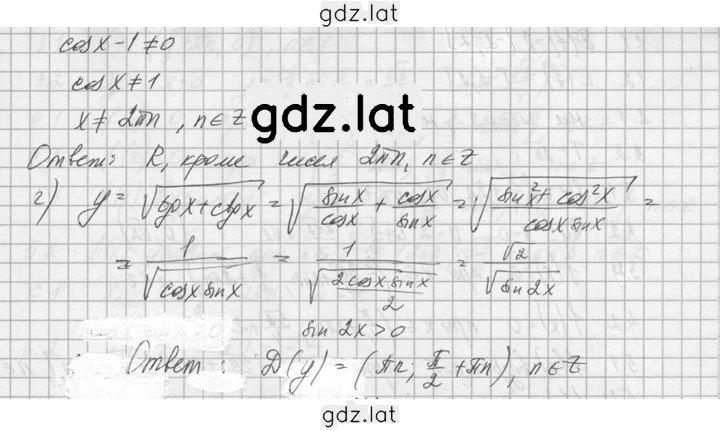 gdz.lat
cos x - 1 ≠ 0
cos x ≠ 1
x ≠ 2πn, n ∈ Z
gdz.lat
Ответ: R, кроме чисел 2πn, n ∈ Z
г) y = √(tgx + ctgx) = √(sin x/cos x + cos x/sin x) = √((sin²x + cos²x)/(cos x sin x)) =
= 1/√(cos x sin x) = 1/√((2cos x sin x)/2) = √2/√(sin 2x)
sin 2x > 0
Ответ: D(y) = (πn; π/2 + πn), n ∈ Z
gdz.lat